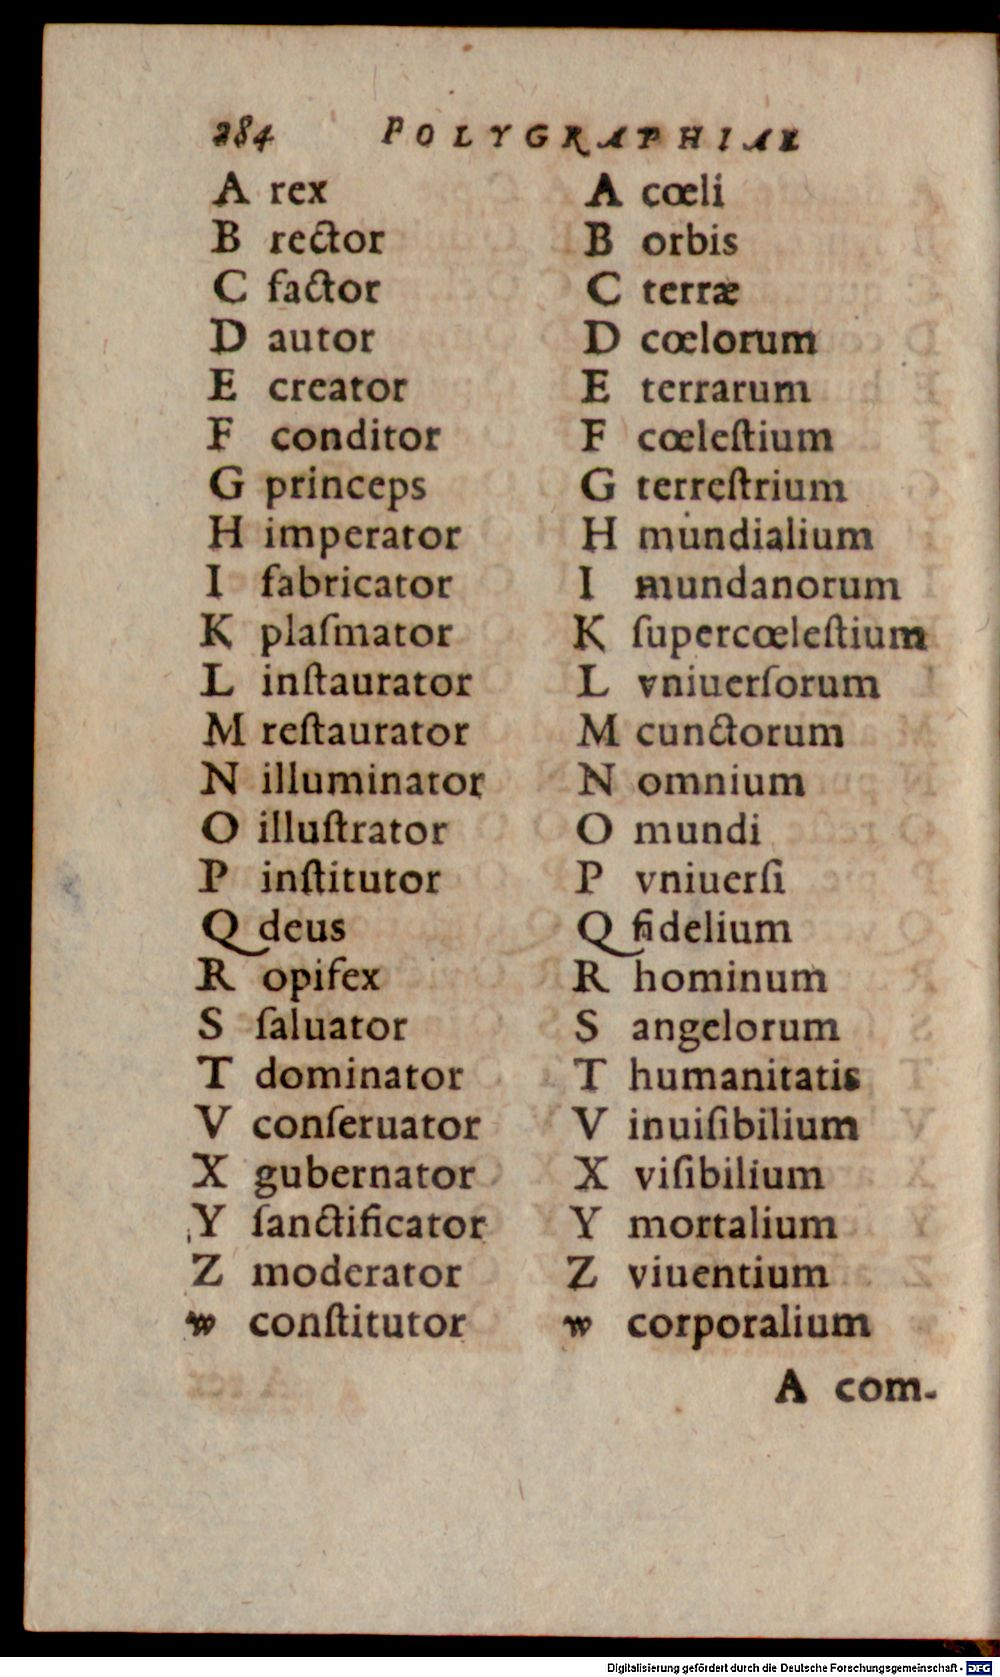 284 POLYGRAPHIAE
A rex
B rector
C factor
D autor
E creator
F conditor
G princeps
H imperator
I fabricator
K plaſmator
L inſtaurator
M reſtaurator
N illuminator
O illuſtrator
P inſtitutor
Q deus
R opifex
S ſaluator
T dominator
V conſeruator
X gubernator
Y ſanctificator
Z moderator
w conſtitutor
A cœli
B orbis
C terræ
D cœlorum
E terrarum
F cœleſtium
G terreſtrium
H mundialium
I mundanorum
K ſupercœleſtium
L vniuerſorum
M cunctorum
N omnium
O mundi
P vniuerſi
Q fidelium
R hominum
S angelorum
T humanitatis
V inuiſibilium
X viſibilium
Y mortalium
Z viuentium
w corporalium
A com-
Digitalisierung gefördert durch die Deutsche Forschungsgemeinschaft - DFG